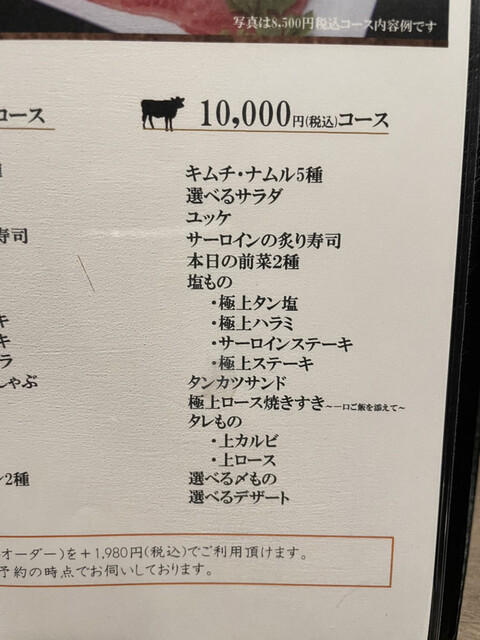 写真は8,500円税込コース内容例です
コース
10,000円(税込)コース
キムチ・ナムル5種
選べるサラダ
ユッケ
寿司
サーロインの炙り寿司
本日の前菜2種
塩もの
・極上タン塩
キ
・極上ハラミ
キ
・サーロインステーキ
ラ
・極上ステーキ
しゃぶ
タンカツサンド
極上ロース焼きすき~一口ご飯を添えて~
タレもの
・上カルビ
・上ロース
2種
選べる〆もの
選べるデザート
オーダー)を+1,980円(税込)でご利用頂けます。
予約の時点でお伺いしております。